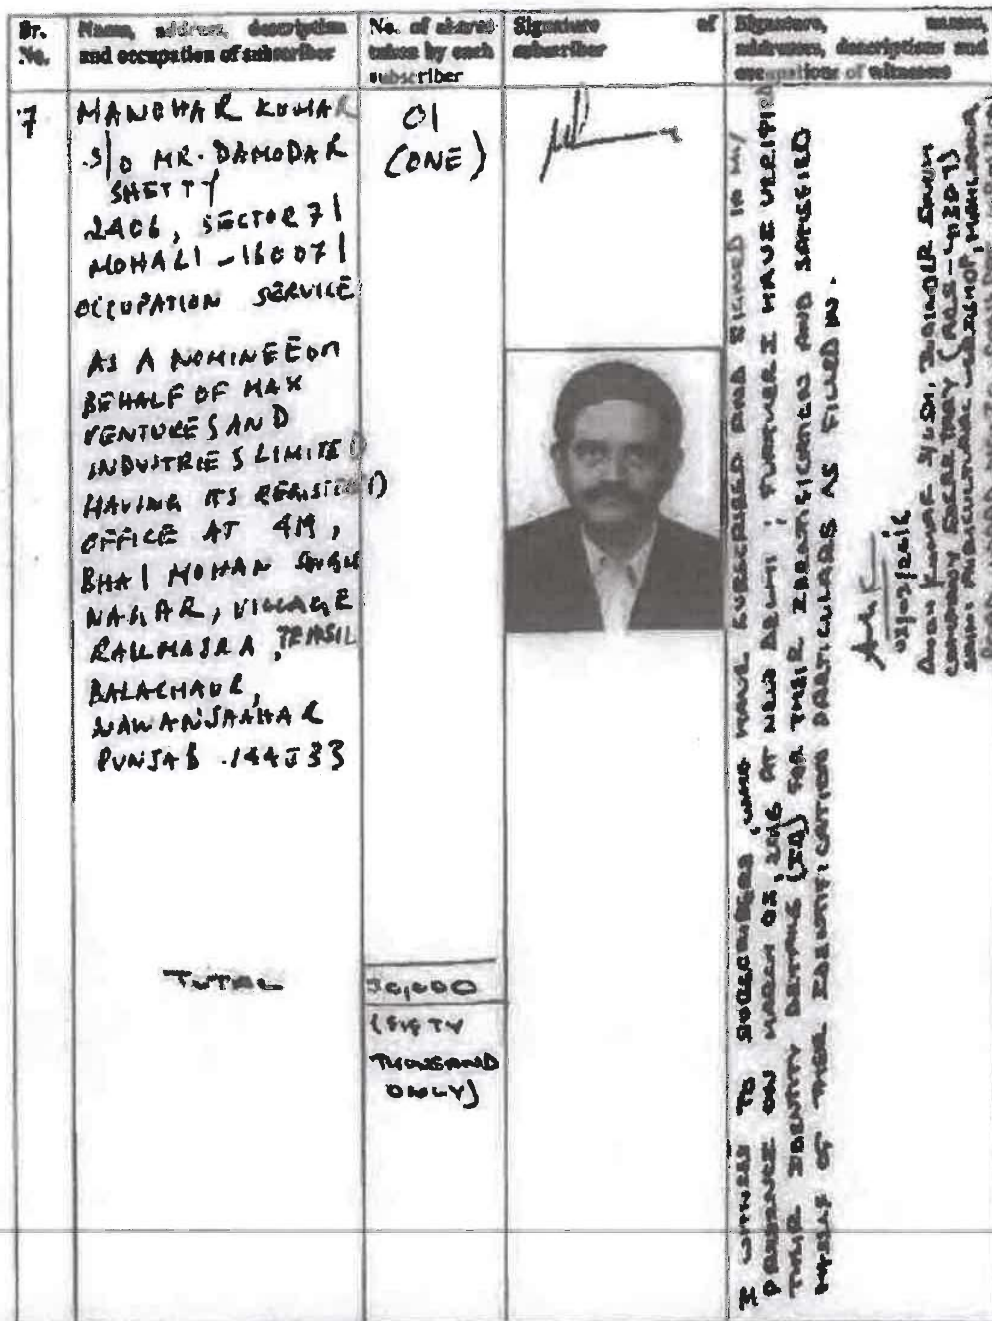 Sr. No.
Name, address, description and occupation of subscriber
No. of shares taken by each subscriber
Signature of subscriber
Signature, names, addresses, descriptions and occupations of witnesses
7
MANOHAR KUMAR
S/o MR. DAMODAR
SHETTY
2406, SECTOR 71
MOHALI - 160071
OCCUPATION SERVICE
AS A NOMINEE ON
BEHALF OF MAX
VENTURES AND
INDUSTRIES LIMITED
HAVING ITS REGISTERED
OFFICE AT 419,
BHAI MOHAN SINGH
NAGAR, VILLAGE
RAILMAJRA, TEHSIL
BALACHAUR,
NAWANSHAHAR
PUNJAB . 144533
01
(ONE)
TOTAL
50,000
(FIFTY
THOUSAND
ONLY)
I WITNESS TO SUBSCRIBERS, WHO HAVE SUBSCRIBED AND SIGNED IN MY
PRESENCE ON MARCH 02, 2016 AT NEW DELHI; FURTHER I HAVE VERIFIED
THEIR IDENTITY DETAILS (ID) FOR THEIR IDENTIFICATION AND SATISFIED
MYSELF OF THEIR IDENTIFICATION PARTICULARS AS FILLED IN.
02/03/2016
KUMAR S/o SH.
COMPANY SECRETARY